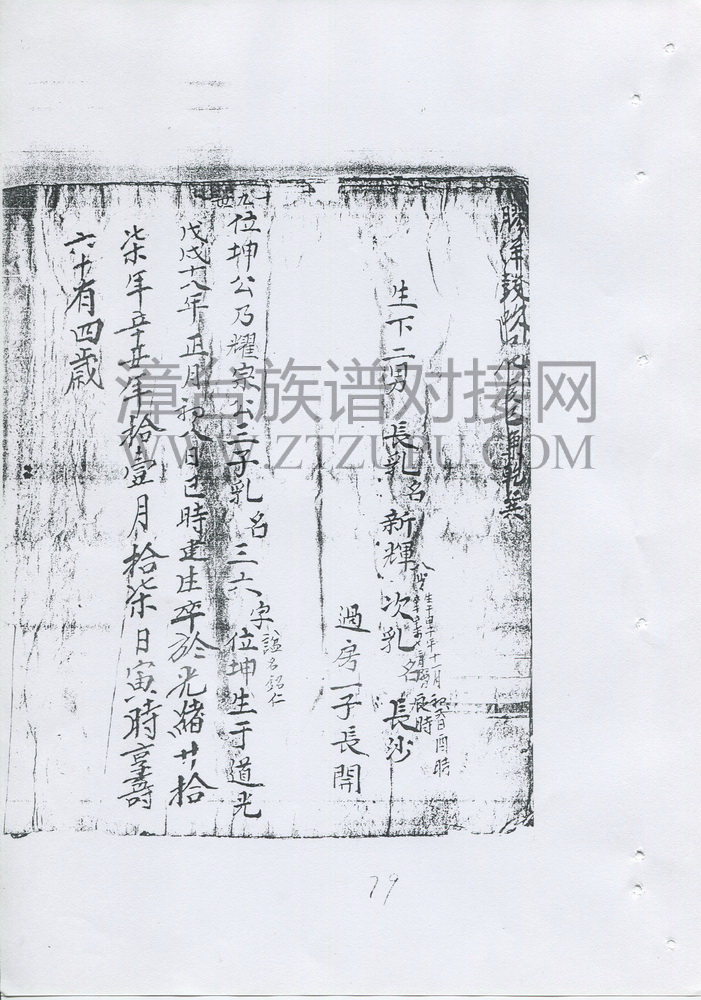 生下二男 長乳名新輝 次乳名長沙
生于甲子年十一月初六日酉時
辰時
過房一子長開
十九世
位坤公乃耀宗公三子乳名三六字位坤生于道光
諡名紹仁
戊戌十八年正月初八日巳時建庄卒於光緒廿拾
柒年辛丑年拾壹月拾柒日寅時享壽
六十有四歲
漳台族谱对接网
WWW.ZTZUPU.COM
79